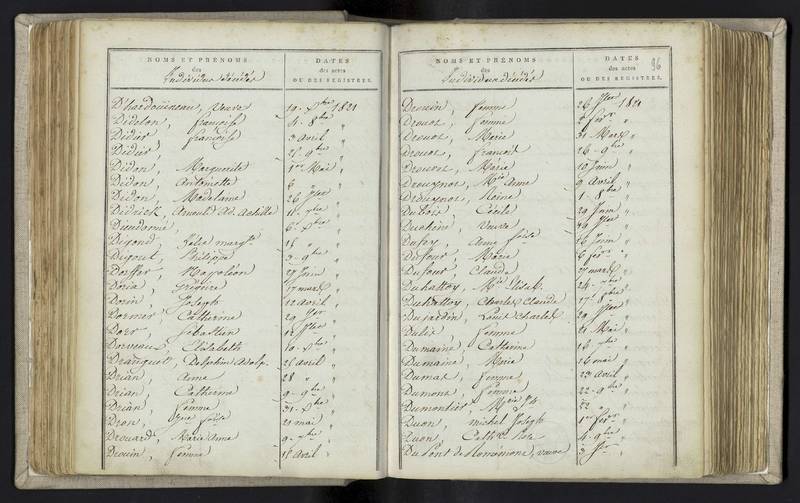 NOMS ET PRÉNOMS
des
Individus décédés
DATES
des actes
OU DES REGISTRES.
D'hardouineau, Veuve 19 Xbre 1821
Didelon, françois 4 8bre "
Didier, françois 3 avril "
Didier, 9bre "
Didon, Marguerite 1er Mai "
Didon, Antoinette 6 "
Didon, Madelaine 26
Didrick, Arnould Ad. Achille 11 7bre "
Dieudonné, 6 Xbre "
Digond, Julie Margte 18 " "
Digout, Philippe 3 9bre "
Napoléon 27 Juin "
Doria, 17 mars "
Dorin, Joseph 12 avril "
Dormier, Catherine 29
Dorr, Sébastien 12
Dorveaux, Elisabeth 10 Xbre "
Dranguet, Delphin Adolp. 26 avril "
Drian, Anne 28 " "
Drian, Catherine 9 9bre "
Drian, femme 31 Xbre "
Dron, 20 mai "
Drouard, Marie Anne 9 7bre "
Drouin, femme 18 Avril "
NOMS ET PRÉNOMS
des
Individus décédés
DATES
des actes
OU DES REGISTRES.
96
Drouin, femme 26 1821
Drouot, femme févr. "
Drouot, Marie 21 Mars "
Drouot, françois 16 9bre "
Drouot, Marie 19 Juin "
Drouynot, Mie Anne 9 Avril "
Drouynot, Reine 1 8bre "
Dubois, Cécile 29 Juin "
Veuve
Dufey, Anne 16 Juin "
Dufour, Marie 6 févr. "
Dufour, Claude 27 mars "
Duhattoy, Mie Elisab. 24 7bre "
Duhattoy, Charles Claude 17 8bre "
Dujardin, Louis Charles 29
Dulié, femme 21 Mai "
Dumaine, Catherine 16 7bre "
Dumaine, Marie 16 mai "
Dumas, femme 23 avril "
Dumont, femme 22 9bre "
Dumontier, Marie 22 "
Duon, michel Joseph 1er févr. "
Duon, Cathne Rose 4 9bre "
DuPont de Romémont, veuve 3